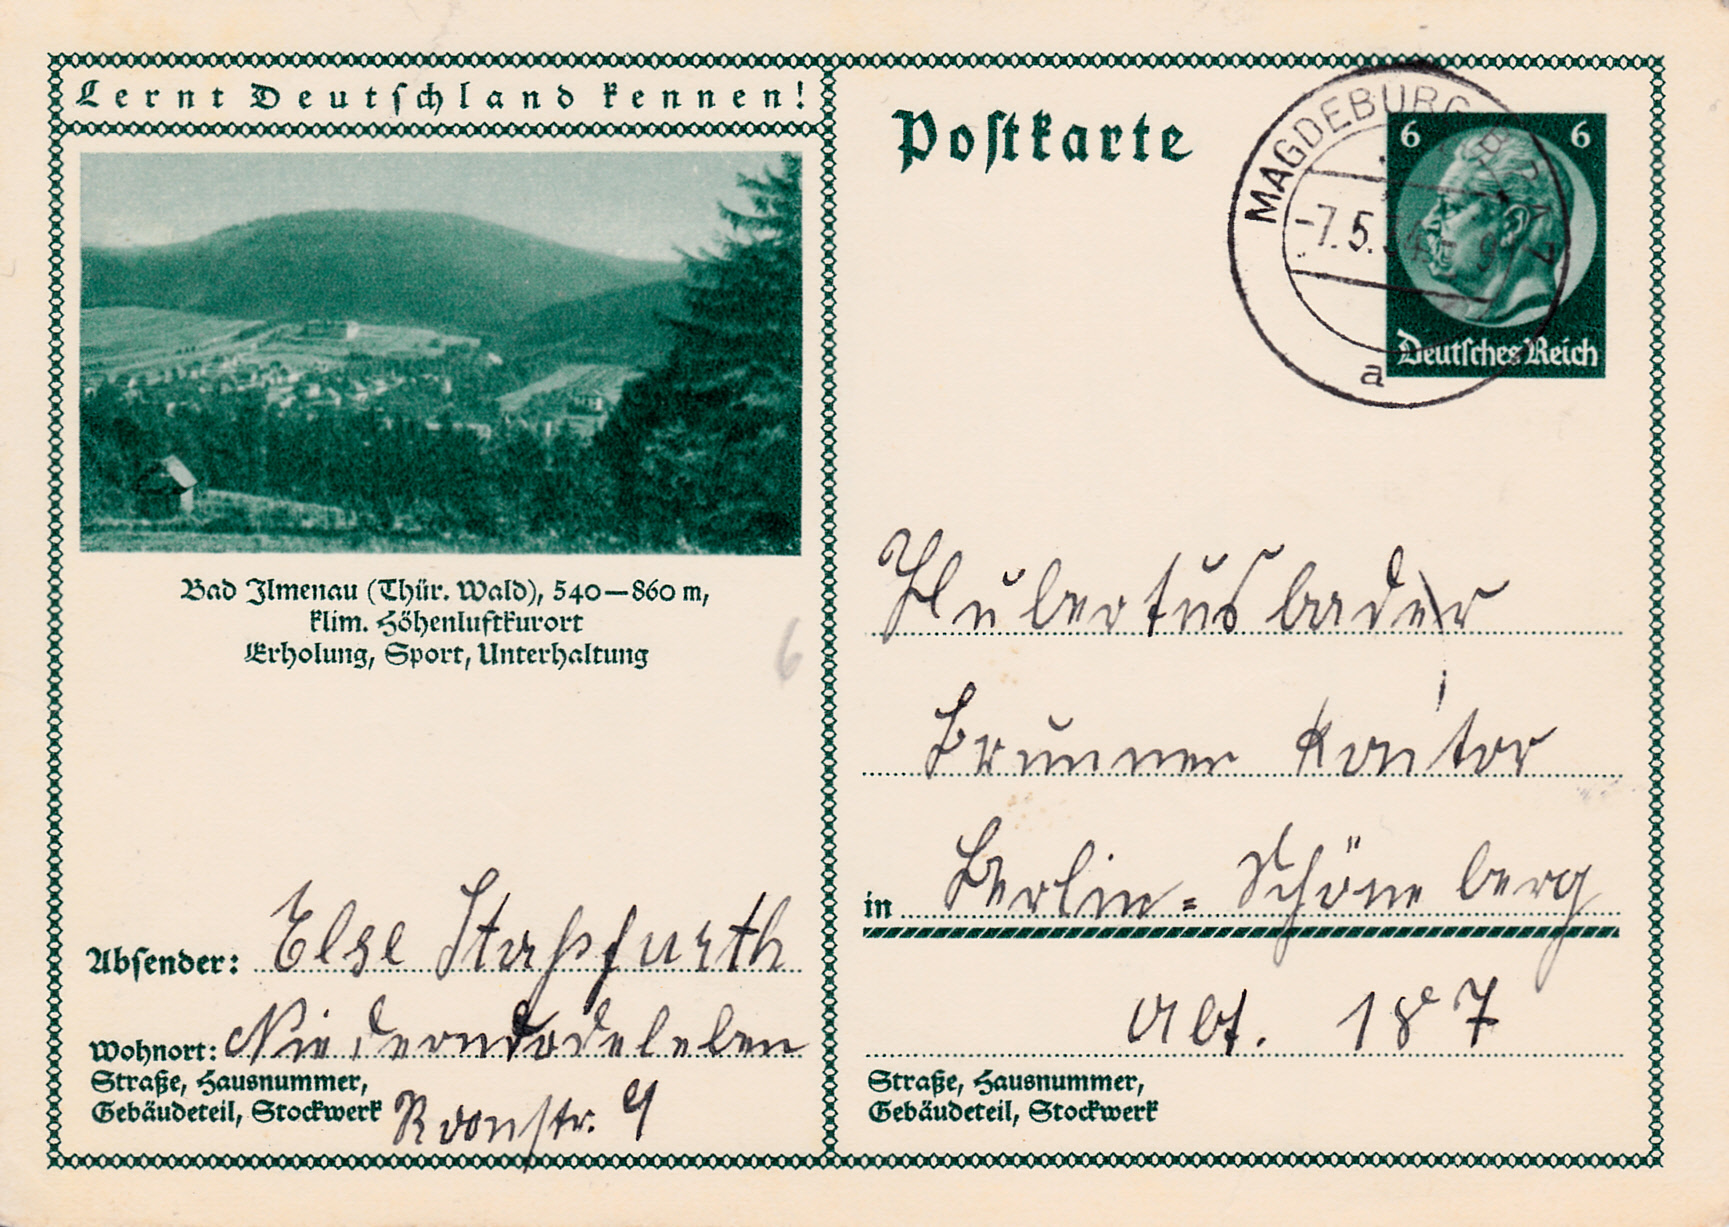 Lernt Deutschland kennen!
Bad Ilmenau (Thür. Wald), 540—860 m,
klim. Höhenluftkurort
Erholung, Sport, Unterhaltung
6
Absender: Else Staßfurth
Wohnort: Niederndodeleben
Straße, Hausnummer,
Gebäudeteil, Stockwerk Roonstr. 9
Postkarte
MAGDEBURG
-7.5.34.- 9
a
6 6
Deutsches Reich
Hubertusbader
Brunnen Kontor
in Berlin-Schöneberg
Abt. 187
Straße, Hausnummer,
Gebäudeteil, Stockwerk